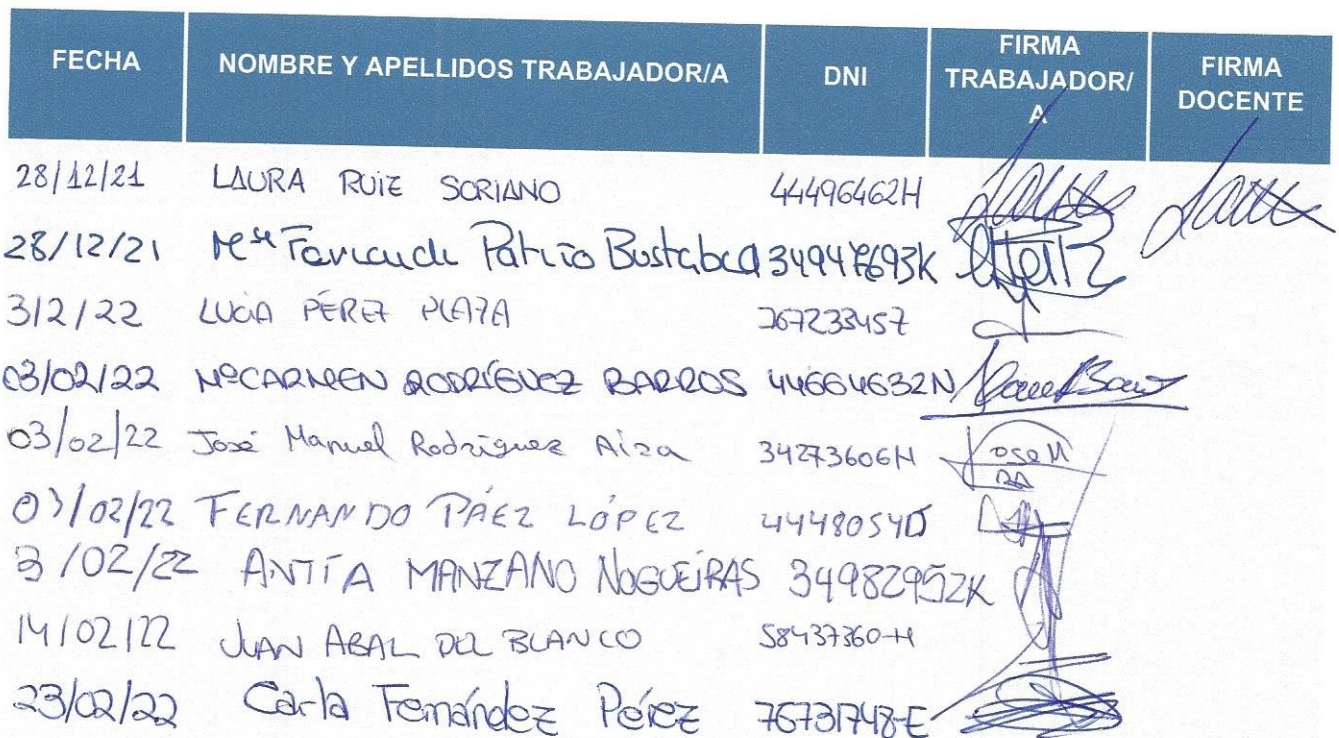 FECHA NOMBRE Y APELLIDOS TRABAJADOR/A DNI FIRMA TRABAJADOR/A FIRMA DOCENTE
28/12/21 LAURA RUIZ SORIANO 44496462H
28/12/21 Mª Patrio Bustabad
3/2/22 LUCÍA PÉREZ PLAZA
03/02/22 MªCARMEN RODRÍGUEZ BARROS 44664632N
03/02/22 José Manuel Rodríguez Aira 34273606H Jose M RA
03/02/22 FERNANDO PÁEZ LÓPEZ
3/02/22 ANTÍA MANZANO NOGUEIRAS 34982952K
14/02/22 JUAN ABAL DEL BLANCO 58437360-H
23/02/22 Carla Fernández Pérez 76731748-E